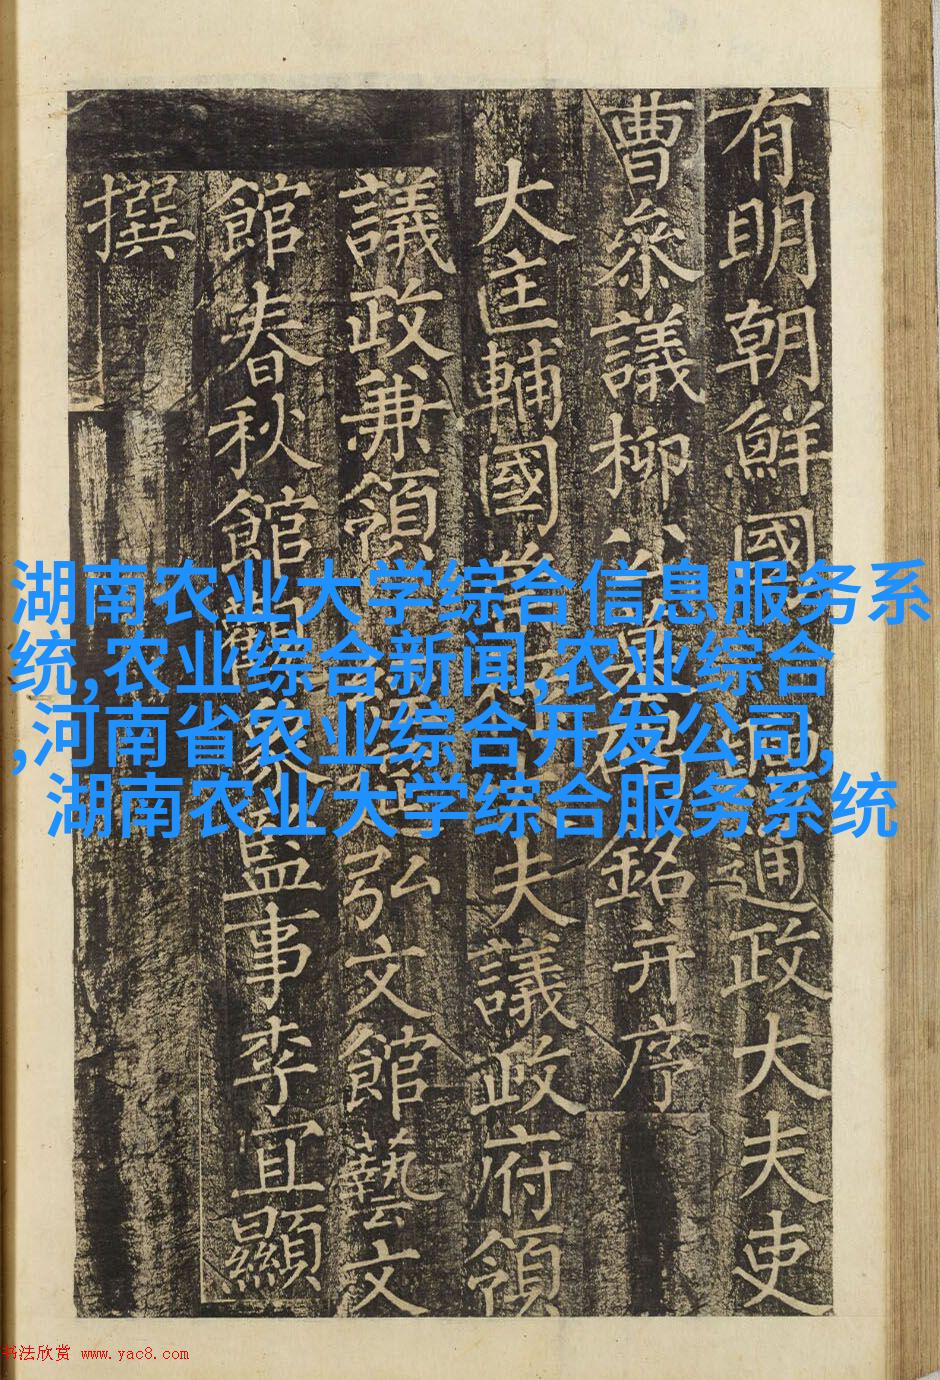 有明朝鮮國通政大夫吏
曹叅議柳公銘并序
大匡輔國夫議政府領
議政兼領弘文館藝文
館春秋館觀象監事李宜顯
撰
湖南农业大学综合信息服务系
统,农业综合新闻,农业综合
,河南省农业综合开发公司,
湖南农业大学综合服务系统
书法欣赏 www.yac8.com